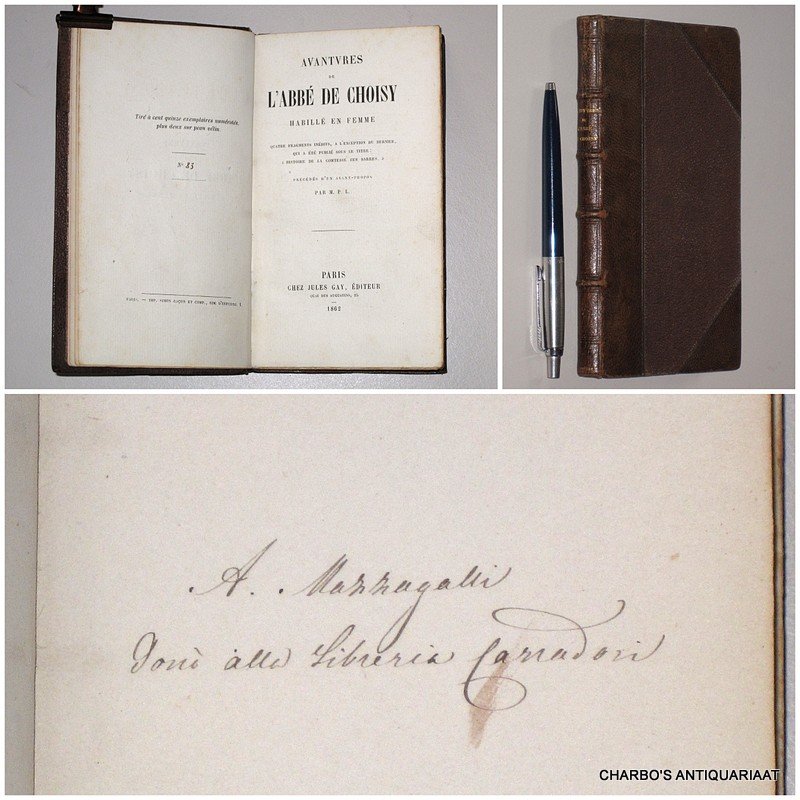 Tiré à cent quinze exemplaires numérotés,
plus deux sur peau vélin.
N° 83
PARIS. — IMP. SIMON RAÇON ET COMP., RUE D'ERFURTH, 1.
AVANTVRES
DE
L'ABBÉ DE CHOISY
HABILLÉ EN FEMME
QUATRE FRAGMENTS INÉDITS, A L'EXCEPTION DU DERNIER,
QUI A ÉTÉ PUBLIÉ SOUS LE TITRE:
« HISTOIRE DE LA COMTESSE DES BARRES. »
PRÉCÉDÉS D'UN AVANT-PROPOS
PAR M. P. L.
PARIS
CHEZ JULES GAY, ÉDITEUR
QUAI DES AUGUSTINS, 25
1862
DE
CHOISY
A. Mazzagalli
Donò alla Libreria Carradori
CHARBO'S ANTIQUARIAAT